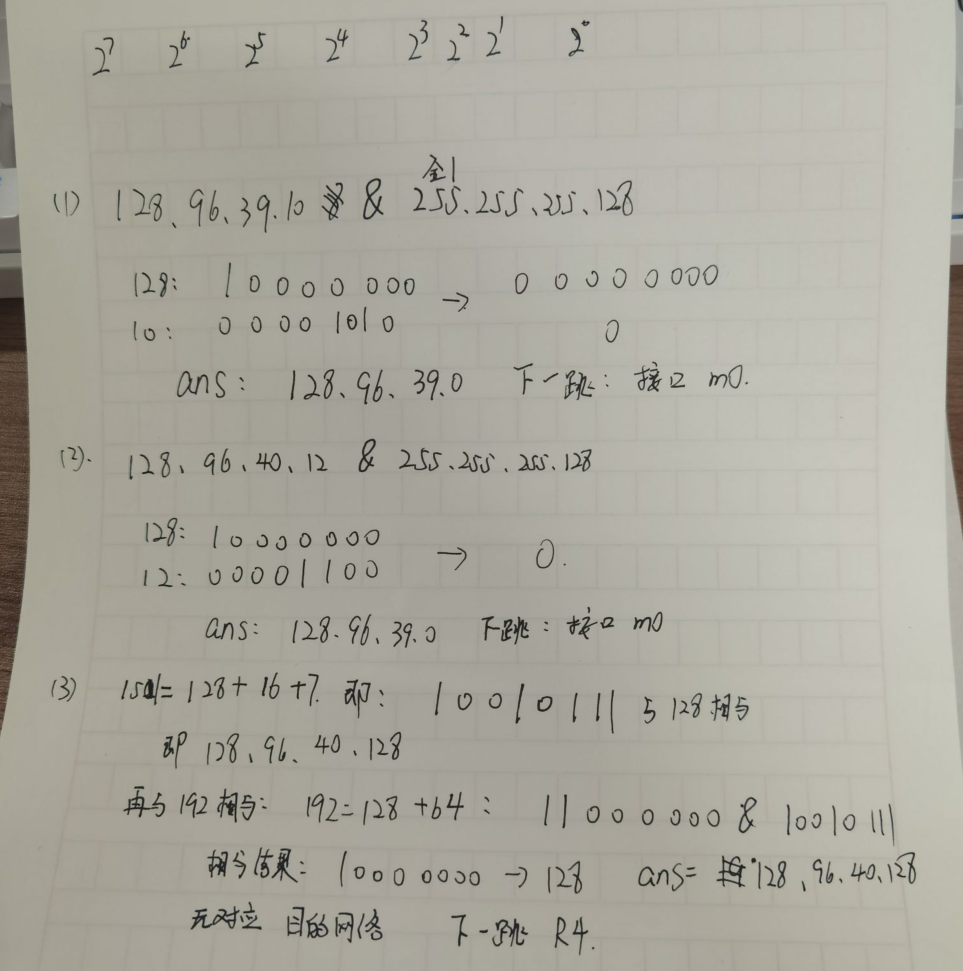 2⁷ 2⁶ 2⁵ 2⁴ 2³ 2² 2¹ 2⁰
全1
(1) 128、96、39.10 & 255、255、255、128
128: 1 0 0 0 0 0 0 0 → 0 0 0 0 0 0 0 0
10: 0 0 0 0 1 0 1 0 0
ans: 128、96、39.0 下一跳: 接口 m0.
(2). 128、96、40、12 & 255.255.255.128
128: 1 0 0 0 0 0 0 0 → 0.
12: 0 0 0 0 1 1 0 0
ans: 128.96、39.0 下跳: 接口 m0
(3) 151=128+16+7. 即: 1 0 0 1 0 1 1 1 与128相与
即 128、96、40、128
再与192相与: 192=128+64: 1 1 0 0 0 0 0 0 & 1 0 0 1 0 1 1 1
相与结果: 1 0 0 0 0 0 0 0 → 128 ans= 128、96、40、128
无对应 目的网络 下一跳 R4.